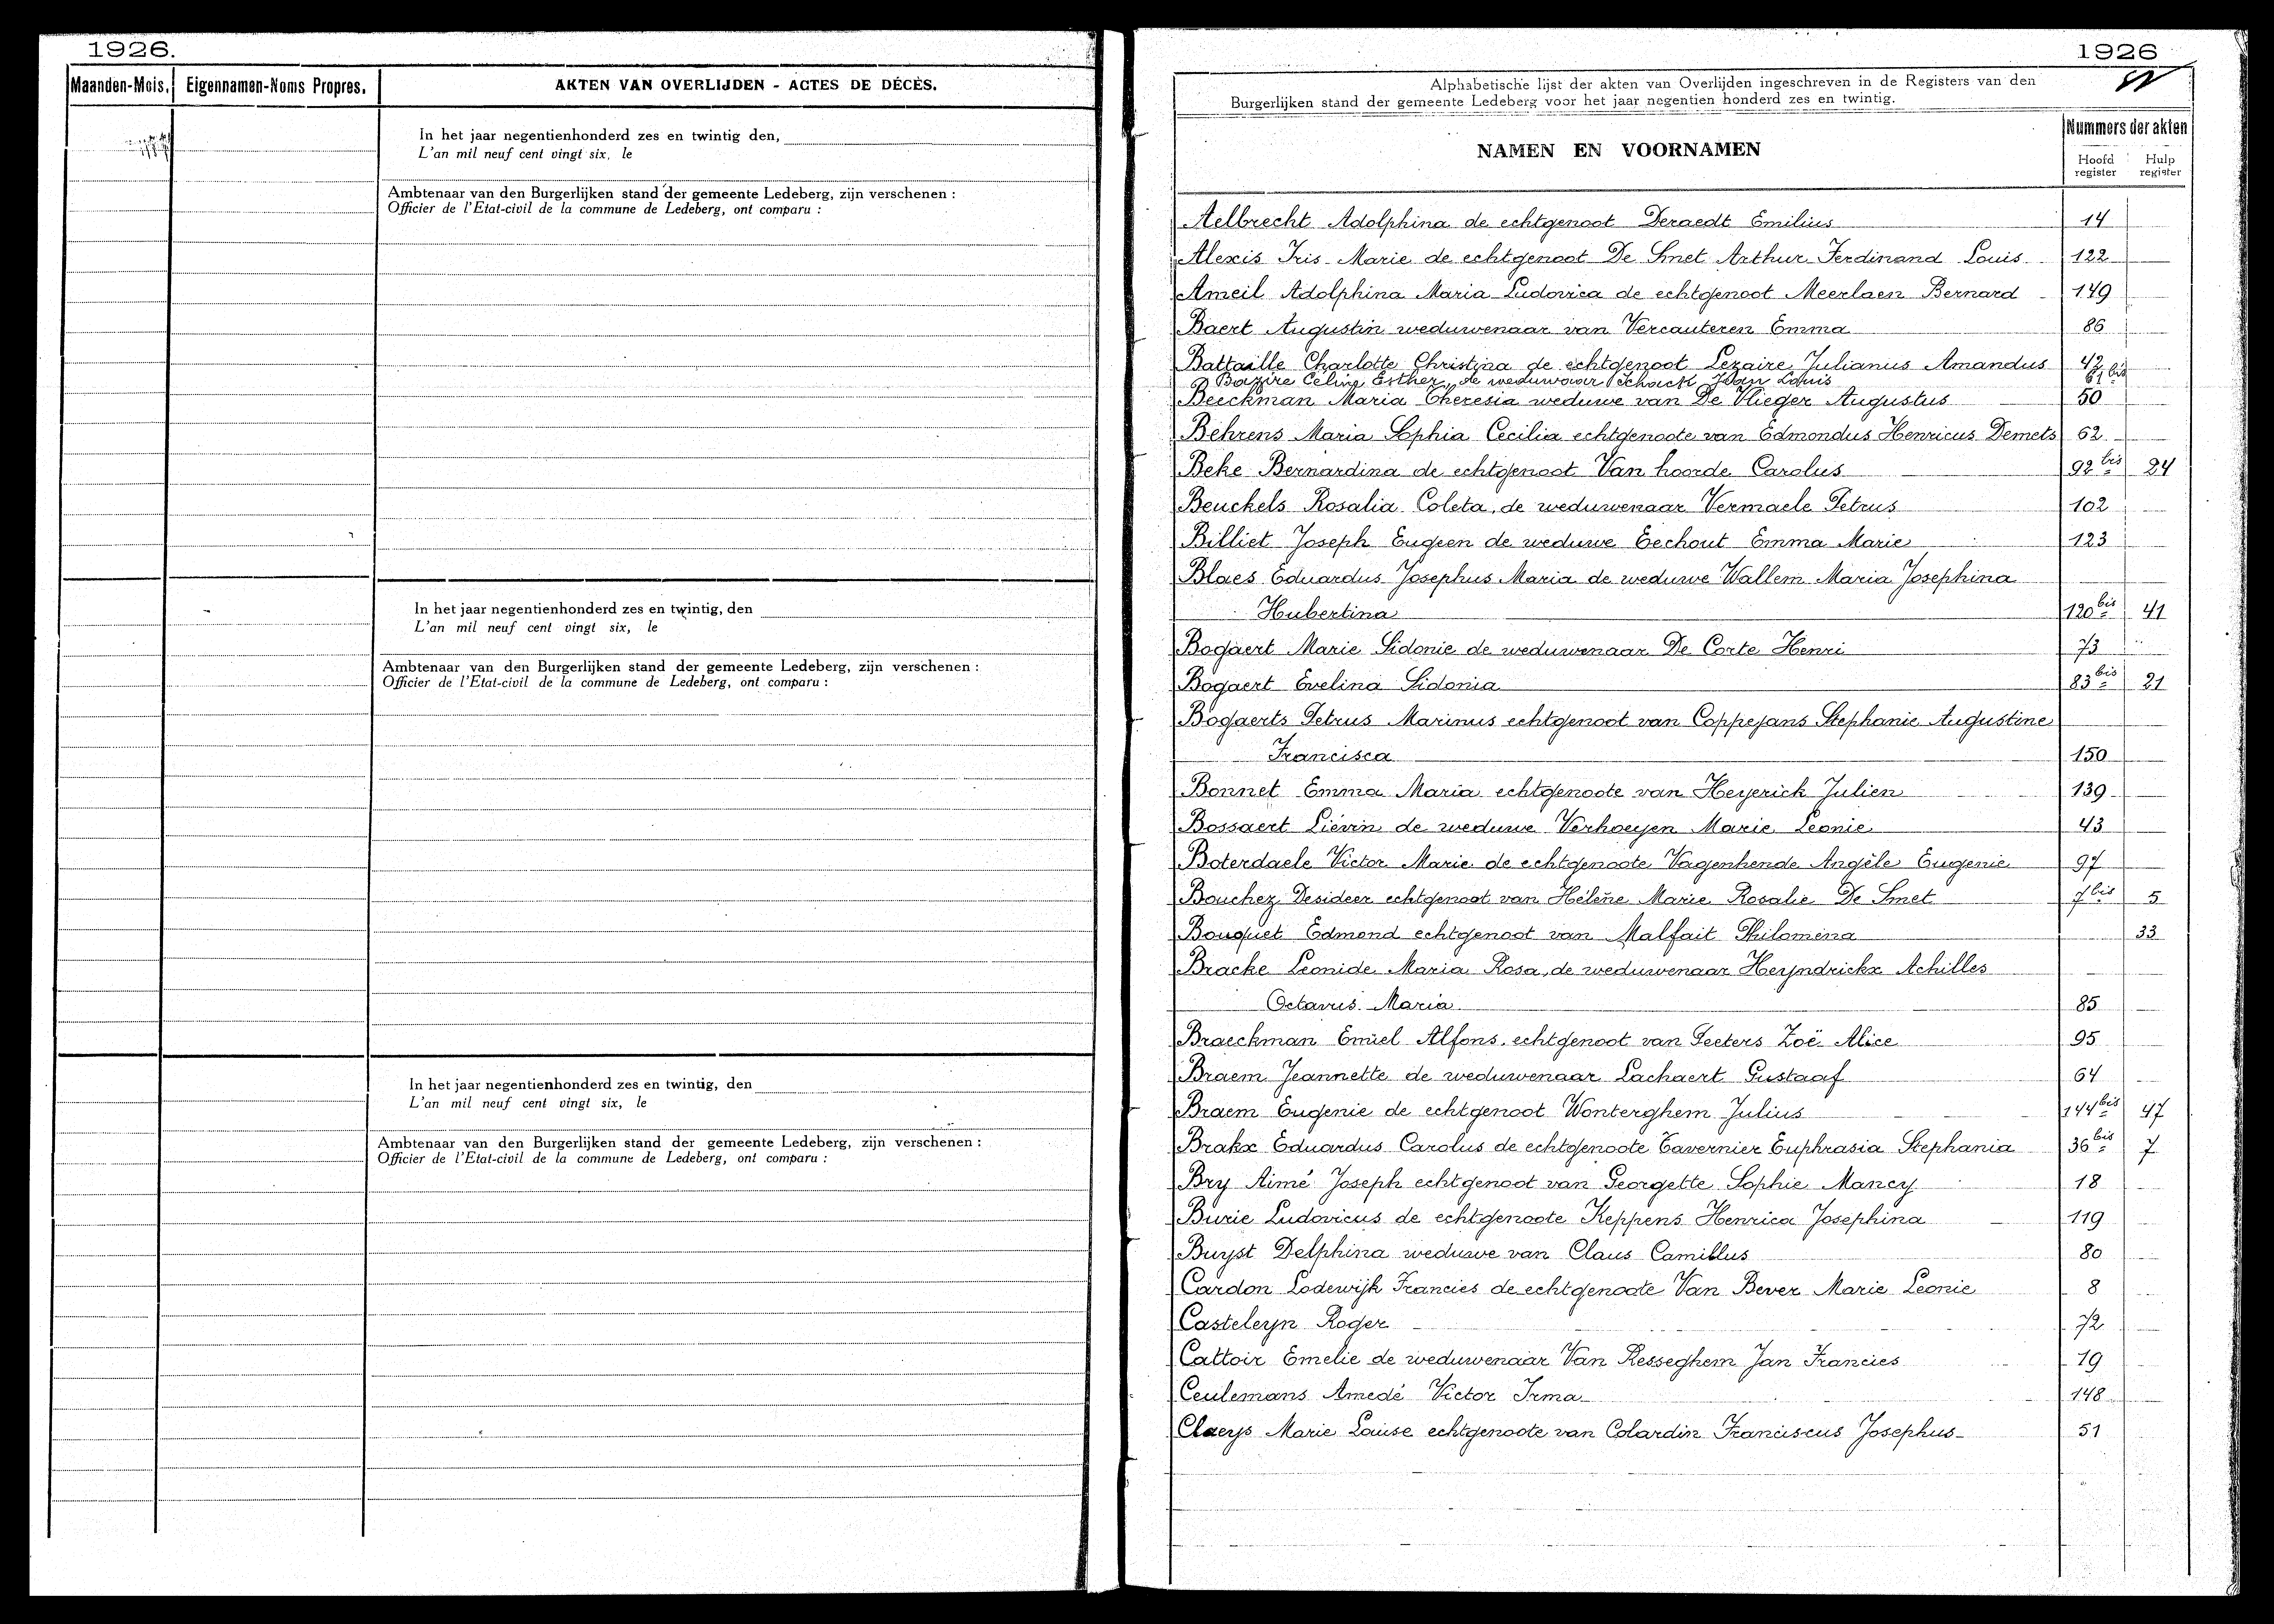 1926.
Maanden-Mois. Eigennamen-Noms Propres. AKTEN VAN OVERLIJDEN - ACTES DE DÉCÈS.
In het jaar negentienhonderd zes en twintig den,
L'an mil neuf cent vingt six, le
Ambtenaar van den Burgerlijken stand der gemeente Ledeberg, zijn verschenen :
Officier de l'Etat-civil de la commune de Ledeberg, ont comparu :
In het jaar negentienhonderd zes en twintig, den
L'an mil neuf cent vingt six, le
Ambtenaar van den Burgerlijken stand der gemeente Ledeberg, zijn verschenen :
Officier de l'Etat-civil de la commune de Ledeberg, ont comparu :
In het jaar negentienhonderd zes en twintig, den
L'an mil neuf cent vingt six, le
Ambtenaar van den Burgerlijken stand der gemeente Ledeberg, zijn verschenen :
Officier de l'Etat-civil de la commune de Ledeberg, ont comparu :
1926
Alphabetische lijst der akten van Overlijden ingeschreven in de Registers van den
Burgerlijken stand der gemeente Ledeberg voor het jaar negentien honderd zes en twintig.
NAMEN EN VOORNAMEN
Nummers der akten
Hoofd register Hulp register
Aelbrecht Adolphina de echtgenoot Deraedt Emilius 14
Alexis Iris Marie de echtgenoot De Smet Arthur Ferdinand Louis 122
Ameil Adolphina Maria Ludovica de echtgenoot Meerlaen Bernard 149
Baert Augustin weduwenaar van Vercauteren Emma 86
Battaille Charlotte Christina de echtgenoot Lezaire Julianus Amandus 42
Bazire Céline Esther, de weduwaar Schack Jean Louis 61 bis
Beeckman Maria Theresia weduwe van De Vlieger Augustus 50
Behrens Maria Sophia Cecilia echtgenoote van Edmondus Henricus Demets 62
Beke Bernardina de echtgenoot Van hoorde Carolus 92 bis 24
Beuckels Rosalia Coleta, de weduwenaar Vermaele Petrus 102
Billiet Joseph Eugeen de weduwe Eechout Emma Marie 123
Blaes Eduardus Josephus Maria de weduwe Wallem Maria Josephina
Hubertina 120 bis 41
Bogaert Marie Sidonie de weduwenaar De Corte Henri 73
Bogaert Evelina Sidonia 83 bis 21
Bogaerts Petrus Marinus echtgenoot van Coppejans Stephanie Augustine
Francisca 150
Bonnet Emma Maria echtgenoote van Heyerick Julien 139
Bossaert Liévin de weduwe Verhoeyen Marie Leonie 43
Boterdaele Victor Marie de echtgenoote Vagenhende Angèle Eugenie 97
Bouchez Desideer echtgenoot van Hélène Marie Rosalie De Smet 7 bis 5
Bouquet Edmond echtgenoot van Malfait Philomena 33
Bracke Leonide Maria Rosa, de weduwenaar Heyndrickx Achilles
Octavus Maria 85
Braeckman Emiel Alfons echtgenoot van Peeters Zoë Alice 95
Braem Jeannette de weduwenaar Lachaert Gustaaf 64
Braem Eugenie de echtgenoot Wonterghem Julius 144 bis 47
Brakx Eduardus Carolus de echtgenoote Tavernier Euphrasia Stephania 36 bis 7
Bry Aimé Joseph echtgenoot van Georgette Sophie Mancy 18
Burie Ludovicus de echtgenoote Keppens Henrica Josephina 119
Buyst Delphina weduwe van Claus Camillus 80
Cardon Lodewijk Francies de echtgenoote Van Bever Marie Leonie 8
Casteleyn Roger 72
Cattoir Emelie de weduwenaar Van Resseghem Jan Francies 19
Ceulemans Amedé Victor Irma 148
Claeys Marie Louise echtgenoote van Colardin Franciscus Josephus 51